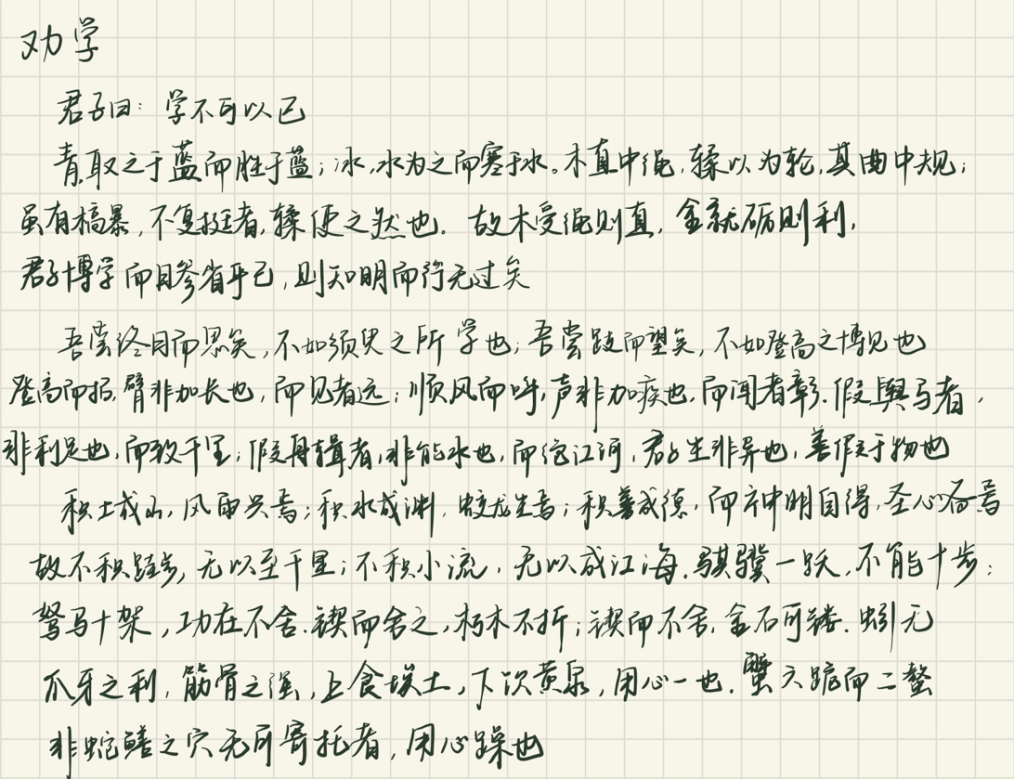 劝学
君子曰：学不可以已
青，取之于蓝而胜于蓝；冰，水为之而寒于水。木直中绳，輮以为轮，其曲中规；
虽有槁暴，不复挺者，輮使之然也．故木受绳则直，金就砺则利，
君子博学而日参省乎己，则知明而行无过矣
吾尝终日而思矣，不如须臾之所学也；吾尝跂而望矣，不如登高之博见也
登高而招，臂非加长也，而见者远；顺风而呼，声非加疾也，而闻者彰．假舆马者，
非利足也，而致千里；假舟楫者，非能水也，而绝江河，君子生非异也，善假于物也
积土成山，风雨兴焉；积水成渊，蛟龙生焉；积善成德，而神明自得，圣心备焉
故不积跬步，无以至千里；不积小流，无以成江海．骐骥一跃，不能十步；
驽马十架，功在不舍．锲而舍之，朽木不折；锲而不舍，金石可镂．蚓无
爪牙之利，筋骨之强，上食埃土，下饮黄泉，用心一也．蟹六跪而二螯
非蛇鳝之穴无可寄托者，用心躁也